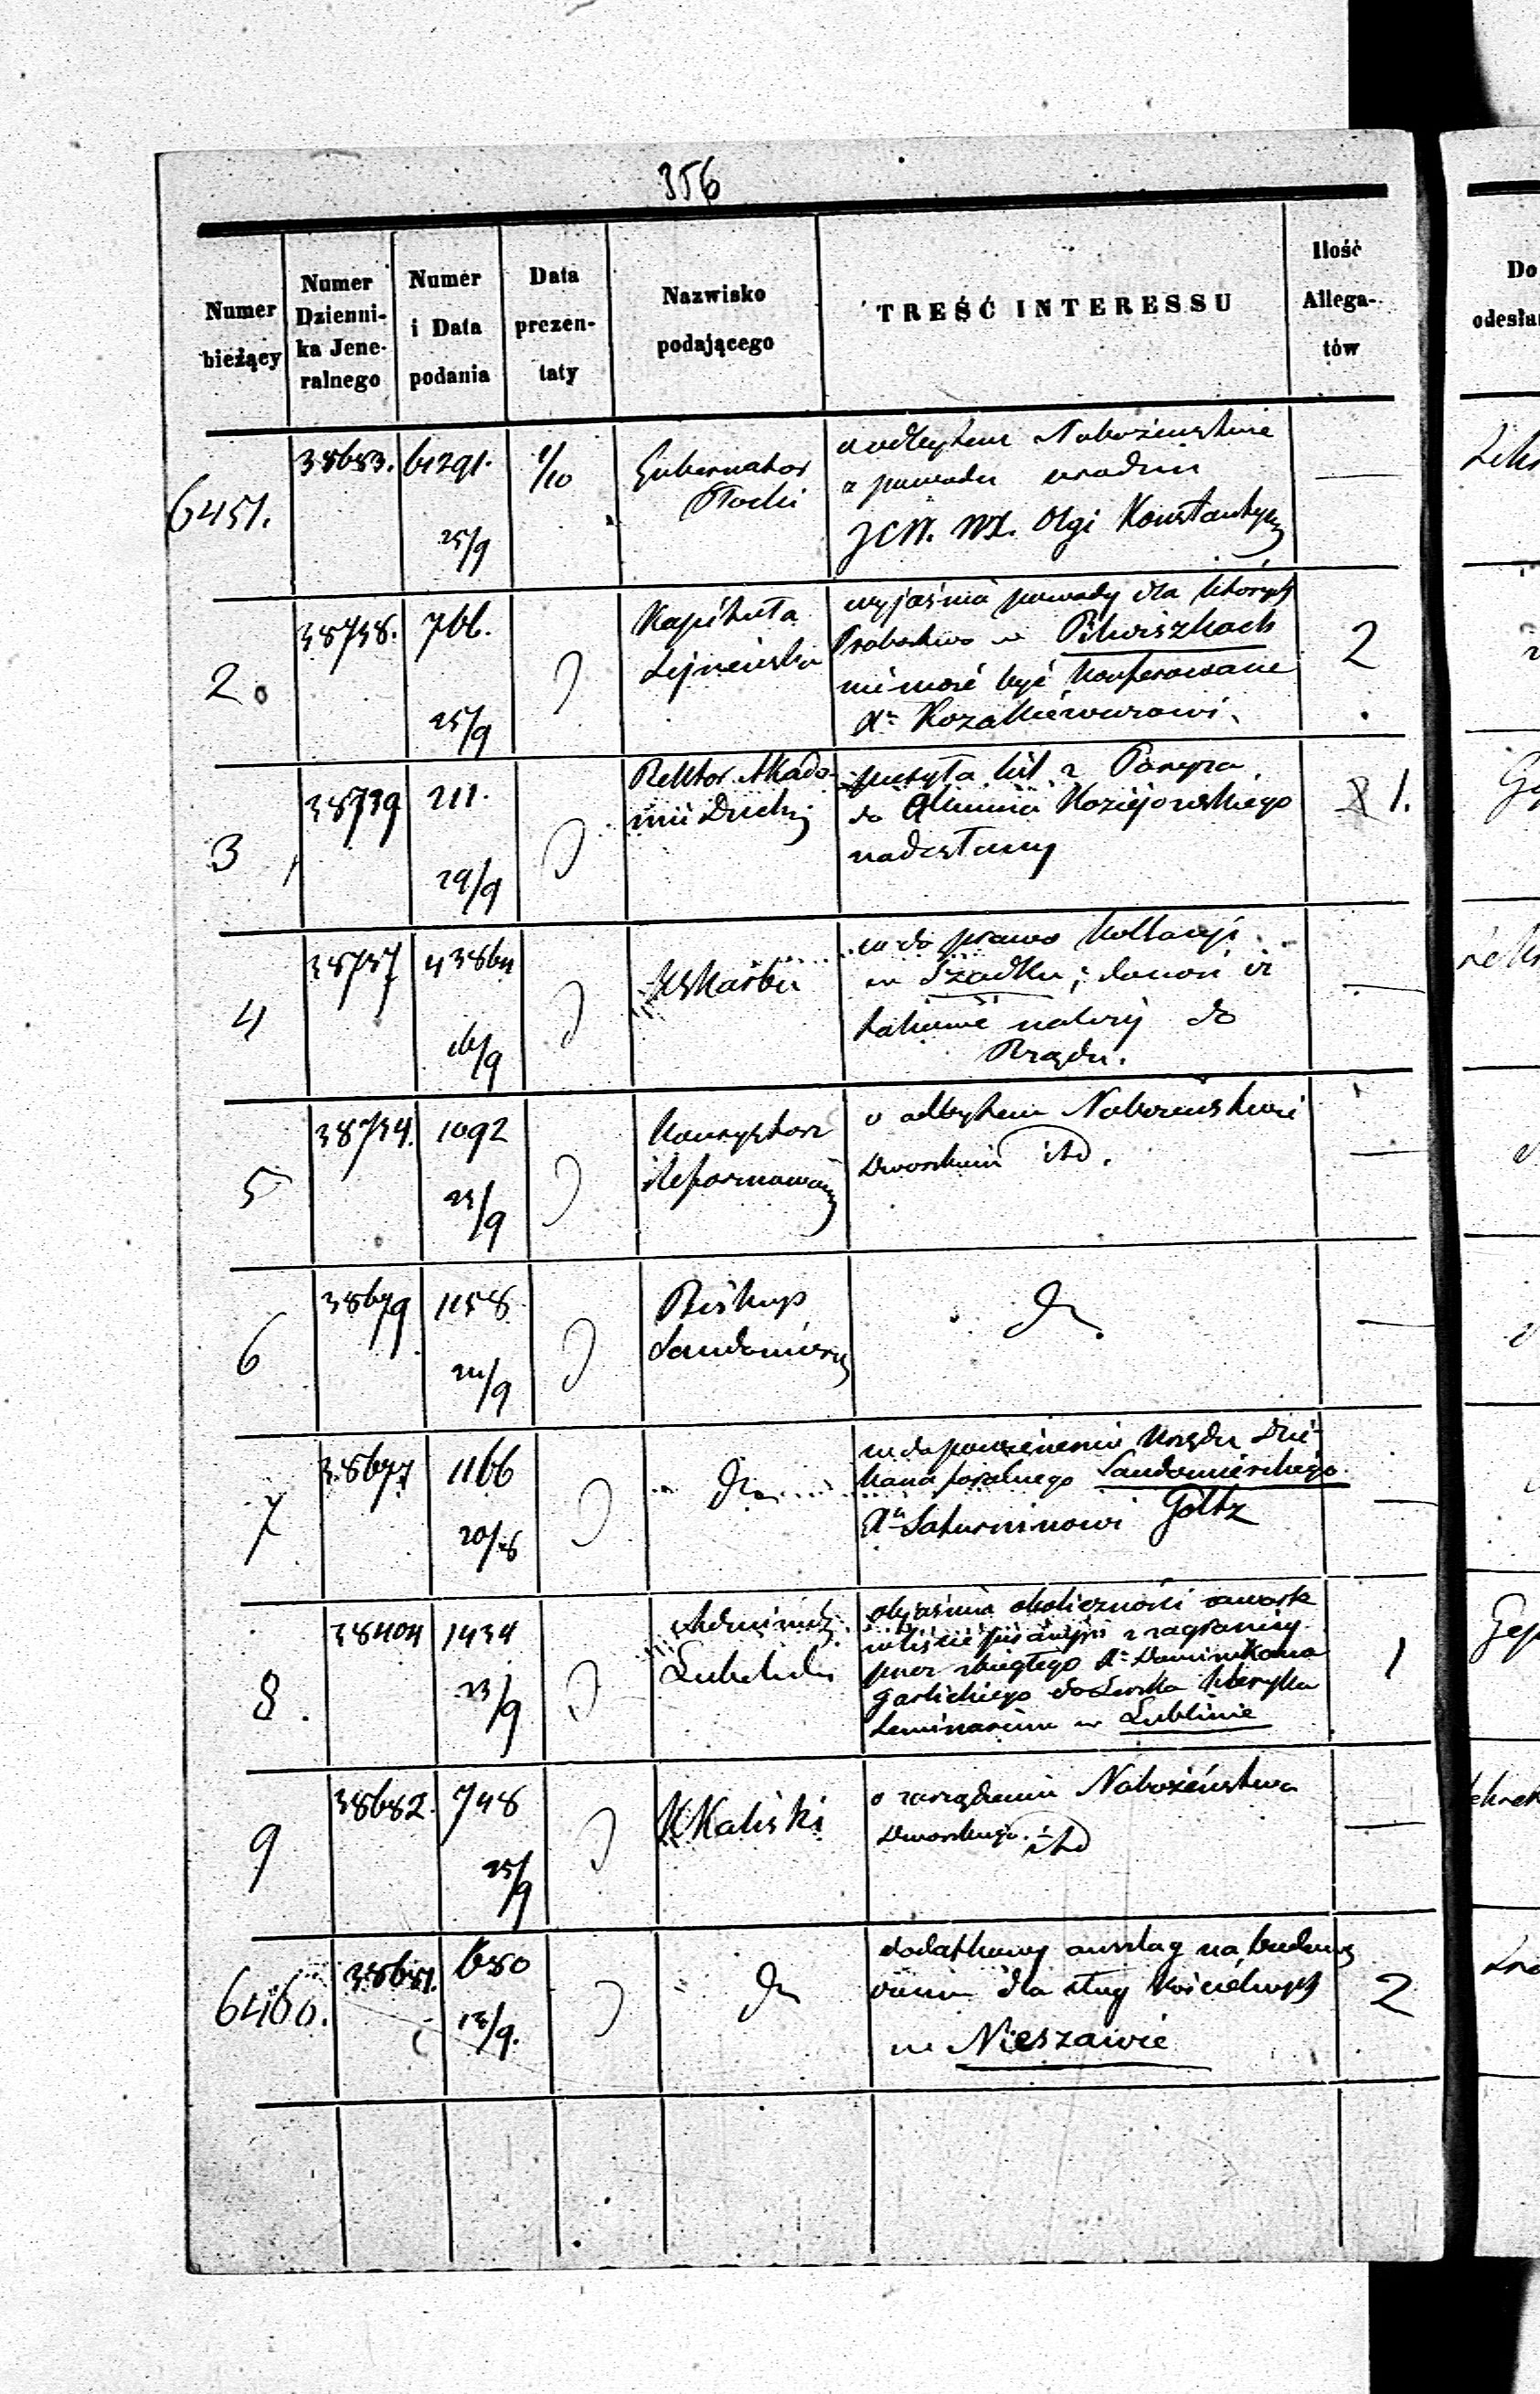 356
Numer bieżący
Numer Dzienni- ka Jene- ralnego
Numer i Data podania
Data prezen- taty
Nazwisko podającego
TREŚĆ INTERESSU
Ilość Allega- tów
Do odesłan
6451.
38683.
61291.
25/9
1/10
Gubernator
Płocki
o odbytem Nabożeństwie
z powodu urodzin
JCW. WX. Olgi Konstantyn
2
38738.
766.
25/9
Kapituła
Sejneńska
wyjaśnia powody dla których
Probostwo w Pilwiszkach
nie może być konferowane
Xu Kozakiewiczowi.
2
3
38739
211.
29/9
Rektor Akade-
mii Duchj
przesyła list z Paryża
do Alumna Koziejowskiego
nadesłany
1.
4
38737
43864
16/9
KSkarbu
co do prawa kollacyi
w Szadku; donosi iż
takowe należy do
Rządu.
5
38734.
1092
23/9
Konsystorz
Reformowany
o odbytem Nabożeństwie
Dworskim itd.
6
38679
1158
24/9
Biskup
Sandomiersj
Do
7
38677
1166
20/8
Do
co do powierzenia Urzędu Dzie-
kana foralnego Sandomierskiego
Xu Saturninowi Goltz
8
38404
1434
23/9
Administr.
Lubelski
objaśnia okoliczności zawarte
w liście pisanym z zagranicy
przez zbiegłego Xa Dominikana
Garlickiego do Kleryka
Seminarium w Lublinie
1
9
38682.
748
25/9
KKaliski
o zarządzeniu Nabożeństwa
Dworskiego itd
6460.
38681.
680
13/9.
Do
dodatkowy anszlag na budowę
domu dla sług kościelnych
w Nieszawie
2